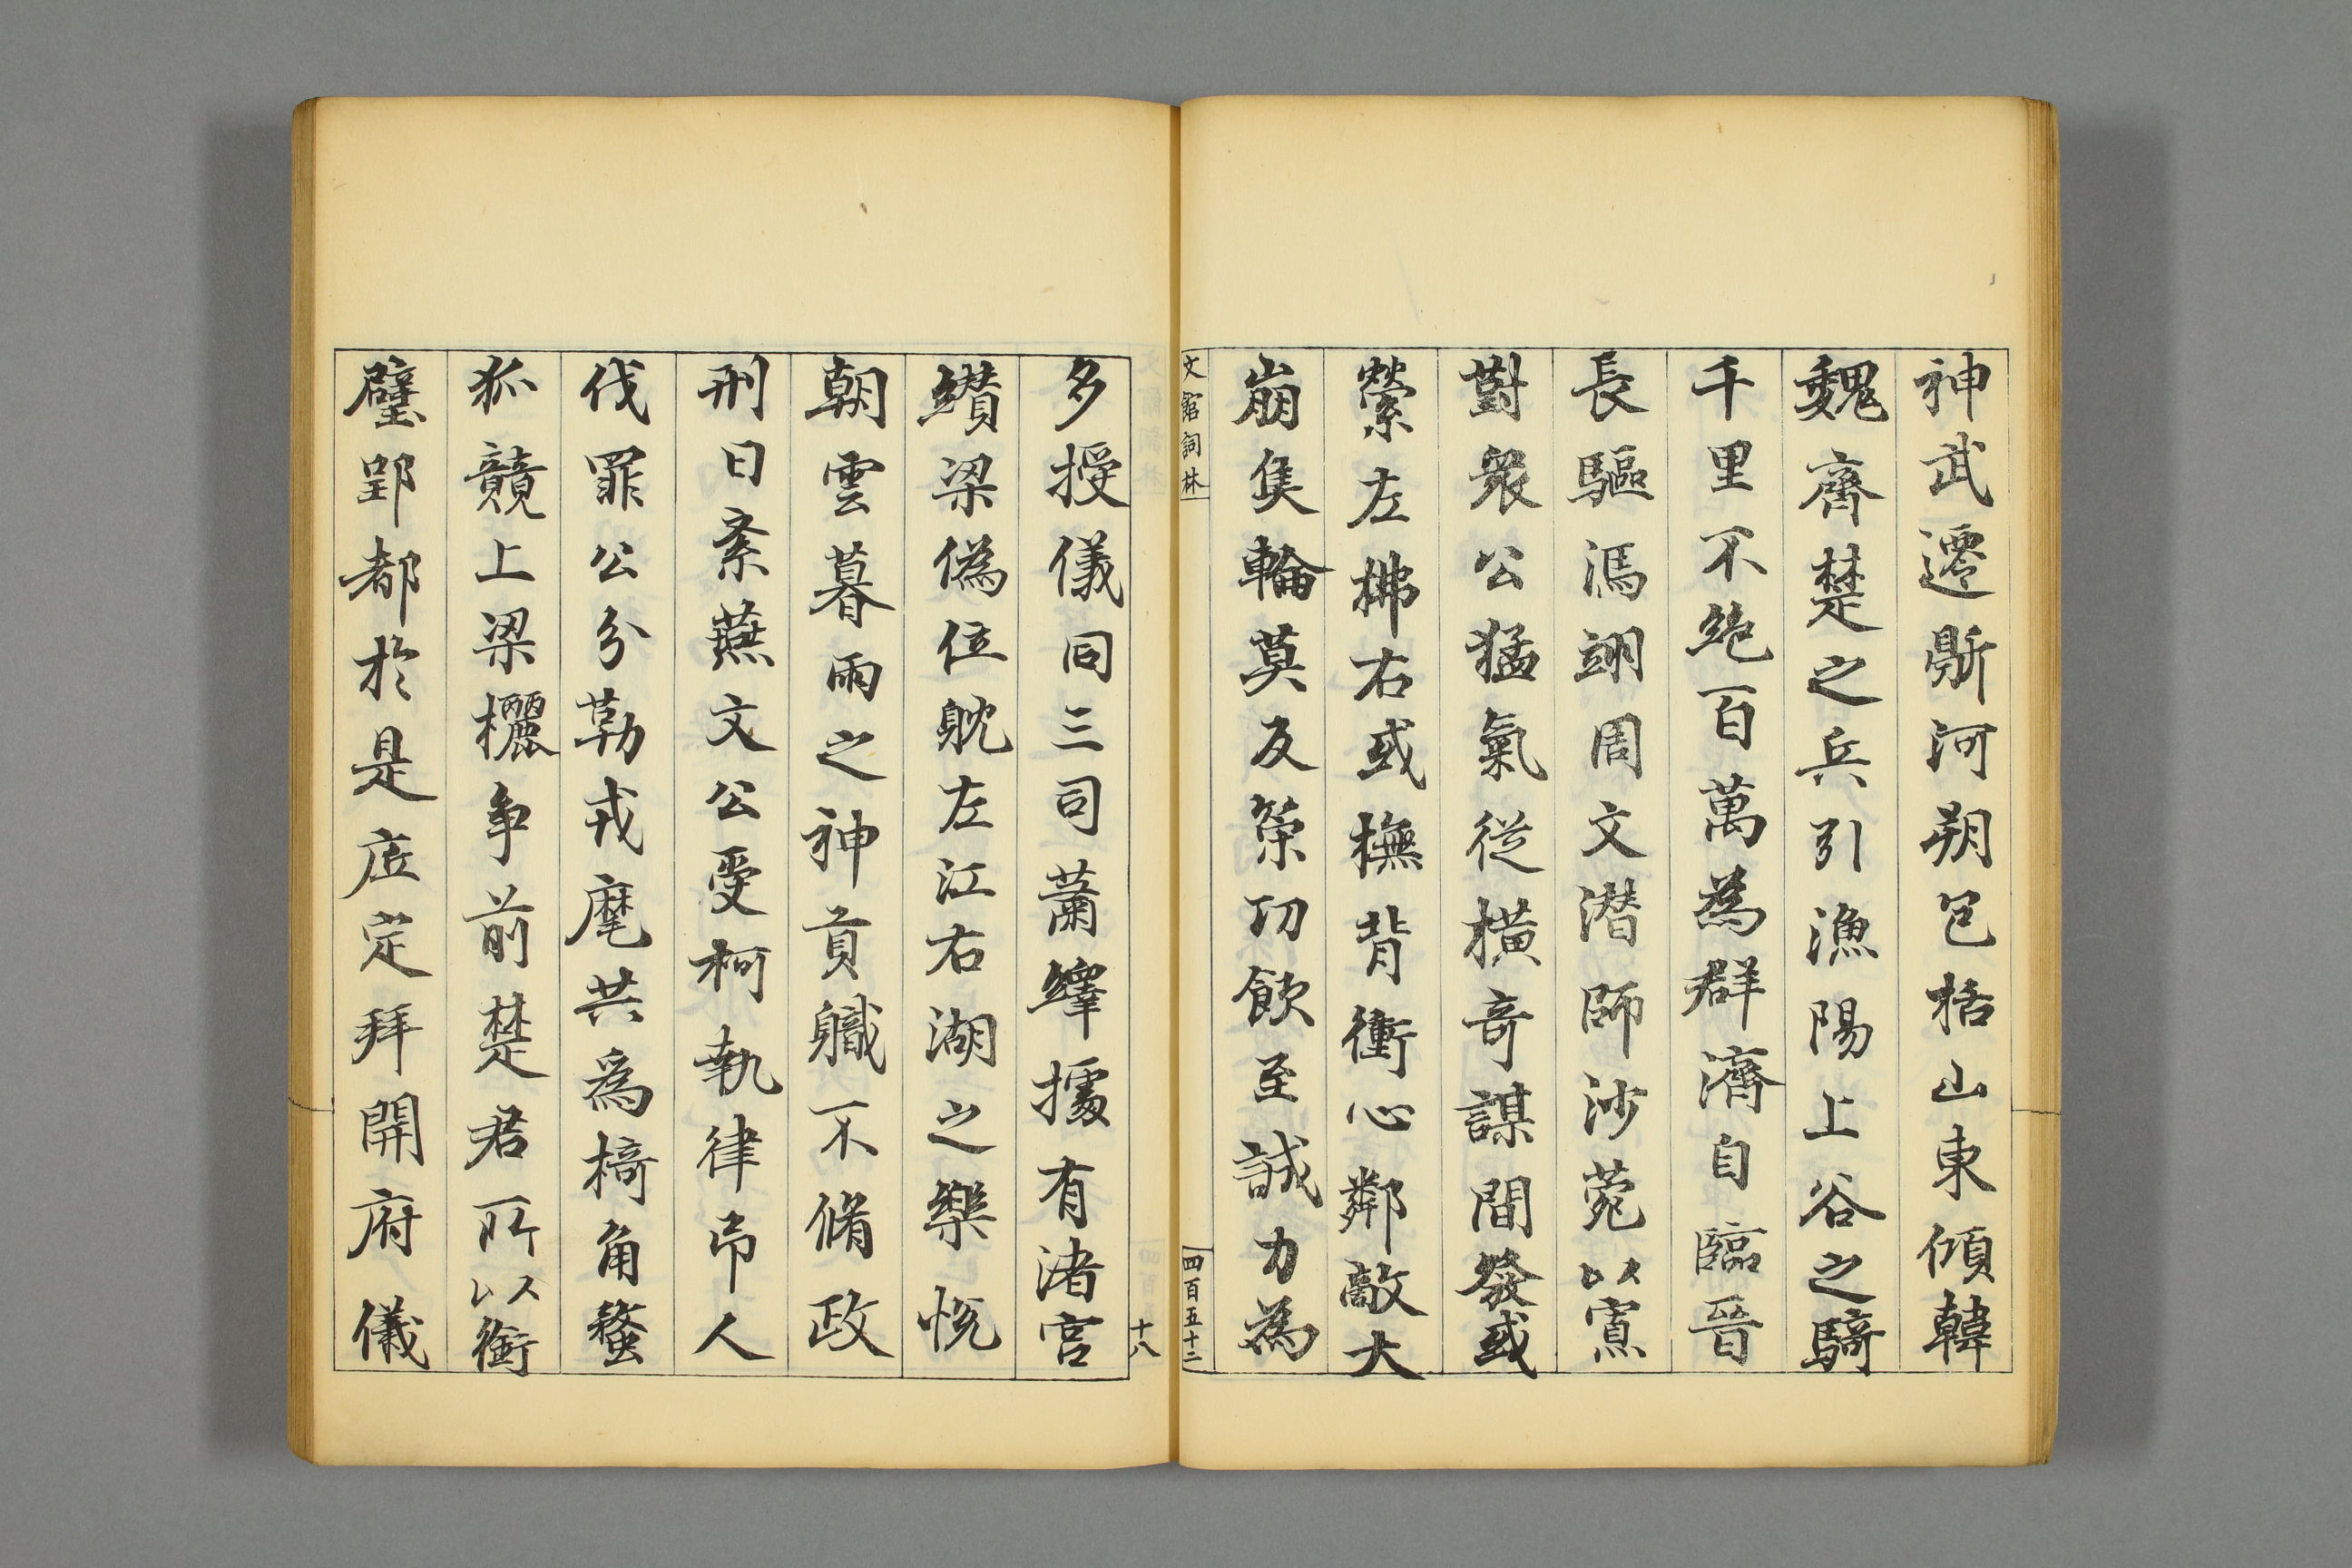 神武遷鼎河朔包括山東傾韓
魏齊楚之兵引漁陽上谷之騎
千里不絶百萬為群濟自臨晉
長驅馮翊周文潜師沙菀以寡
對衆公猛氣從横奇謀間發或
縈左拂右或撫背衝心鄰敵大
崩隻輪莫反策功飲至誠力為
文館詞林
四百五十二
十八
多授儀同三司蕭繹據有渚宮
纉梁偽位躭左江右湖之樂悦
朝雲暮雨之神貢職不脩政
刑日紊蕪文公受柯執律吊人
伐罪公分勒戎麾共為犄角蝥
狐競上梁欐争前楚君所以銜
璧郢都於是底定拜開府儀